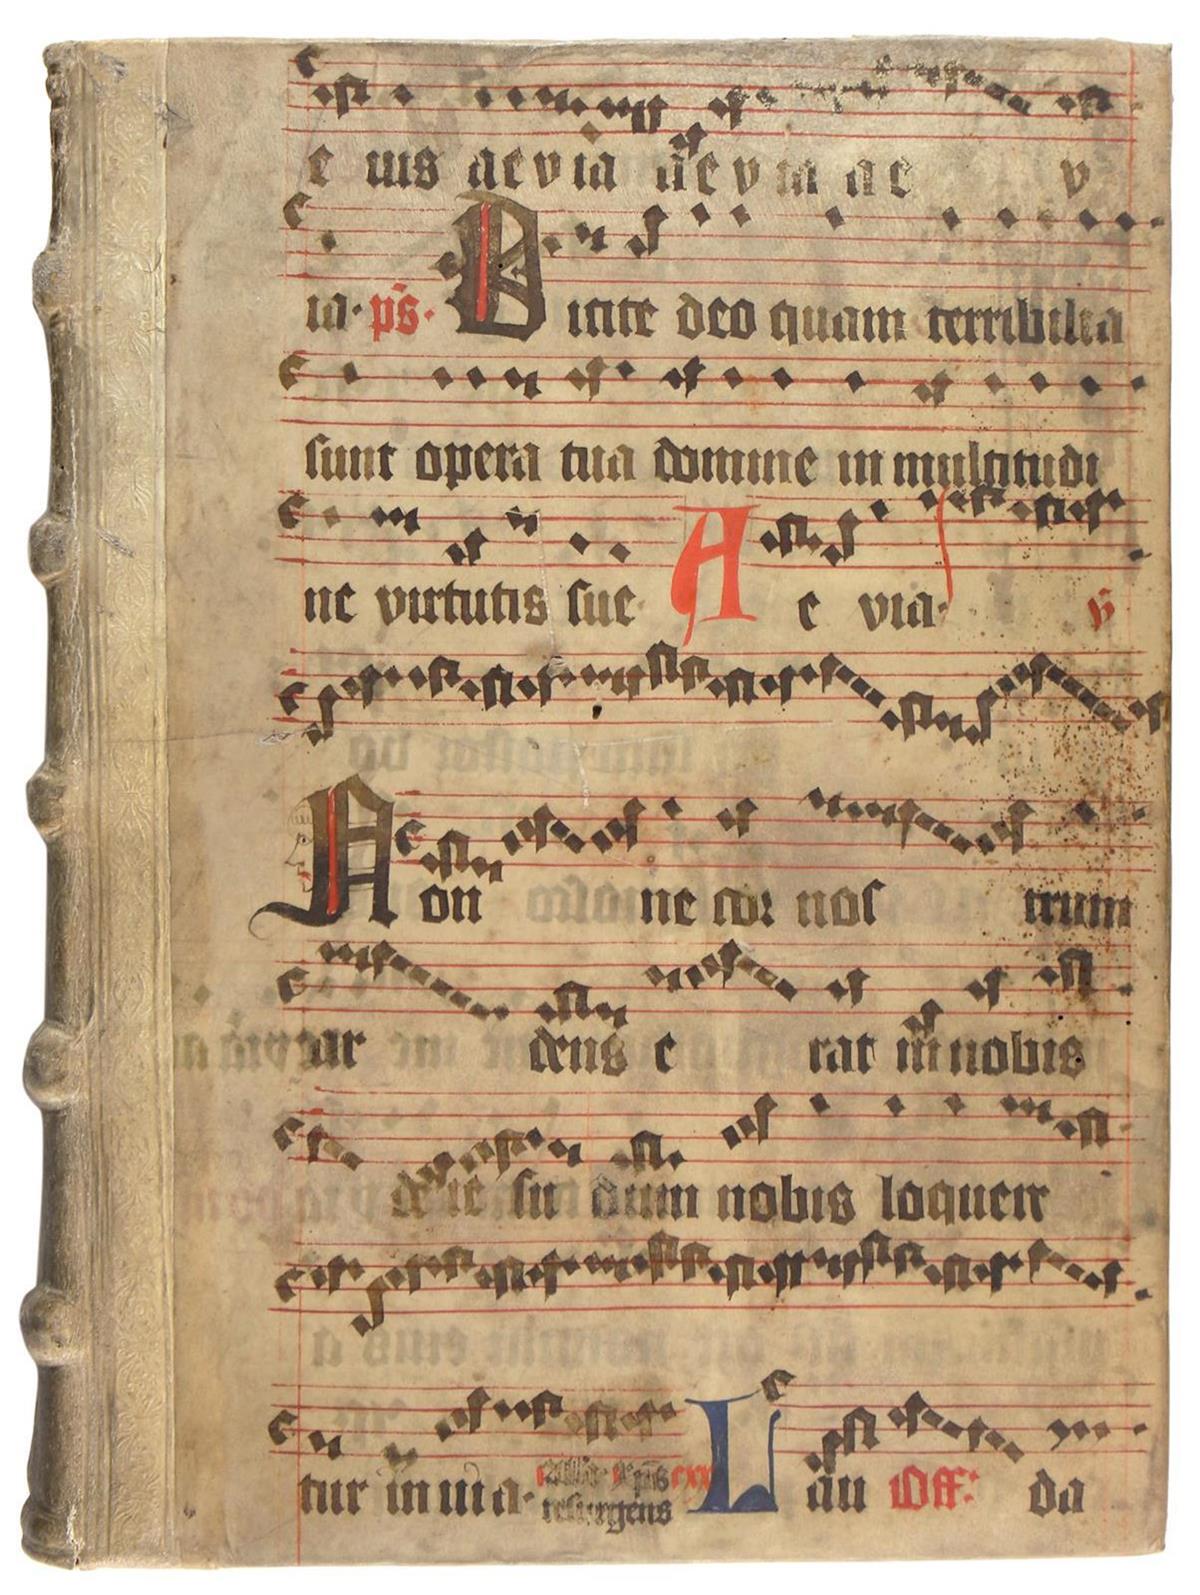 e uis aevia aevia ae v
ia· ps· Dicite deo quam terribilia
sunt opera tua domine in multitudi
ne virtutis sue· A e via· v
Non ne cor nos trum
ar dens e rat in nobis
de ie su dum nobis loquere
tur in uia· resurgens Lau Off: da